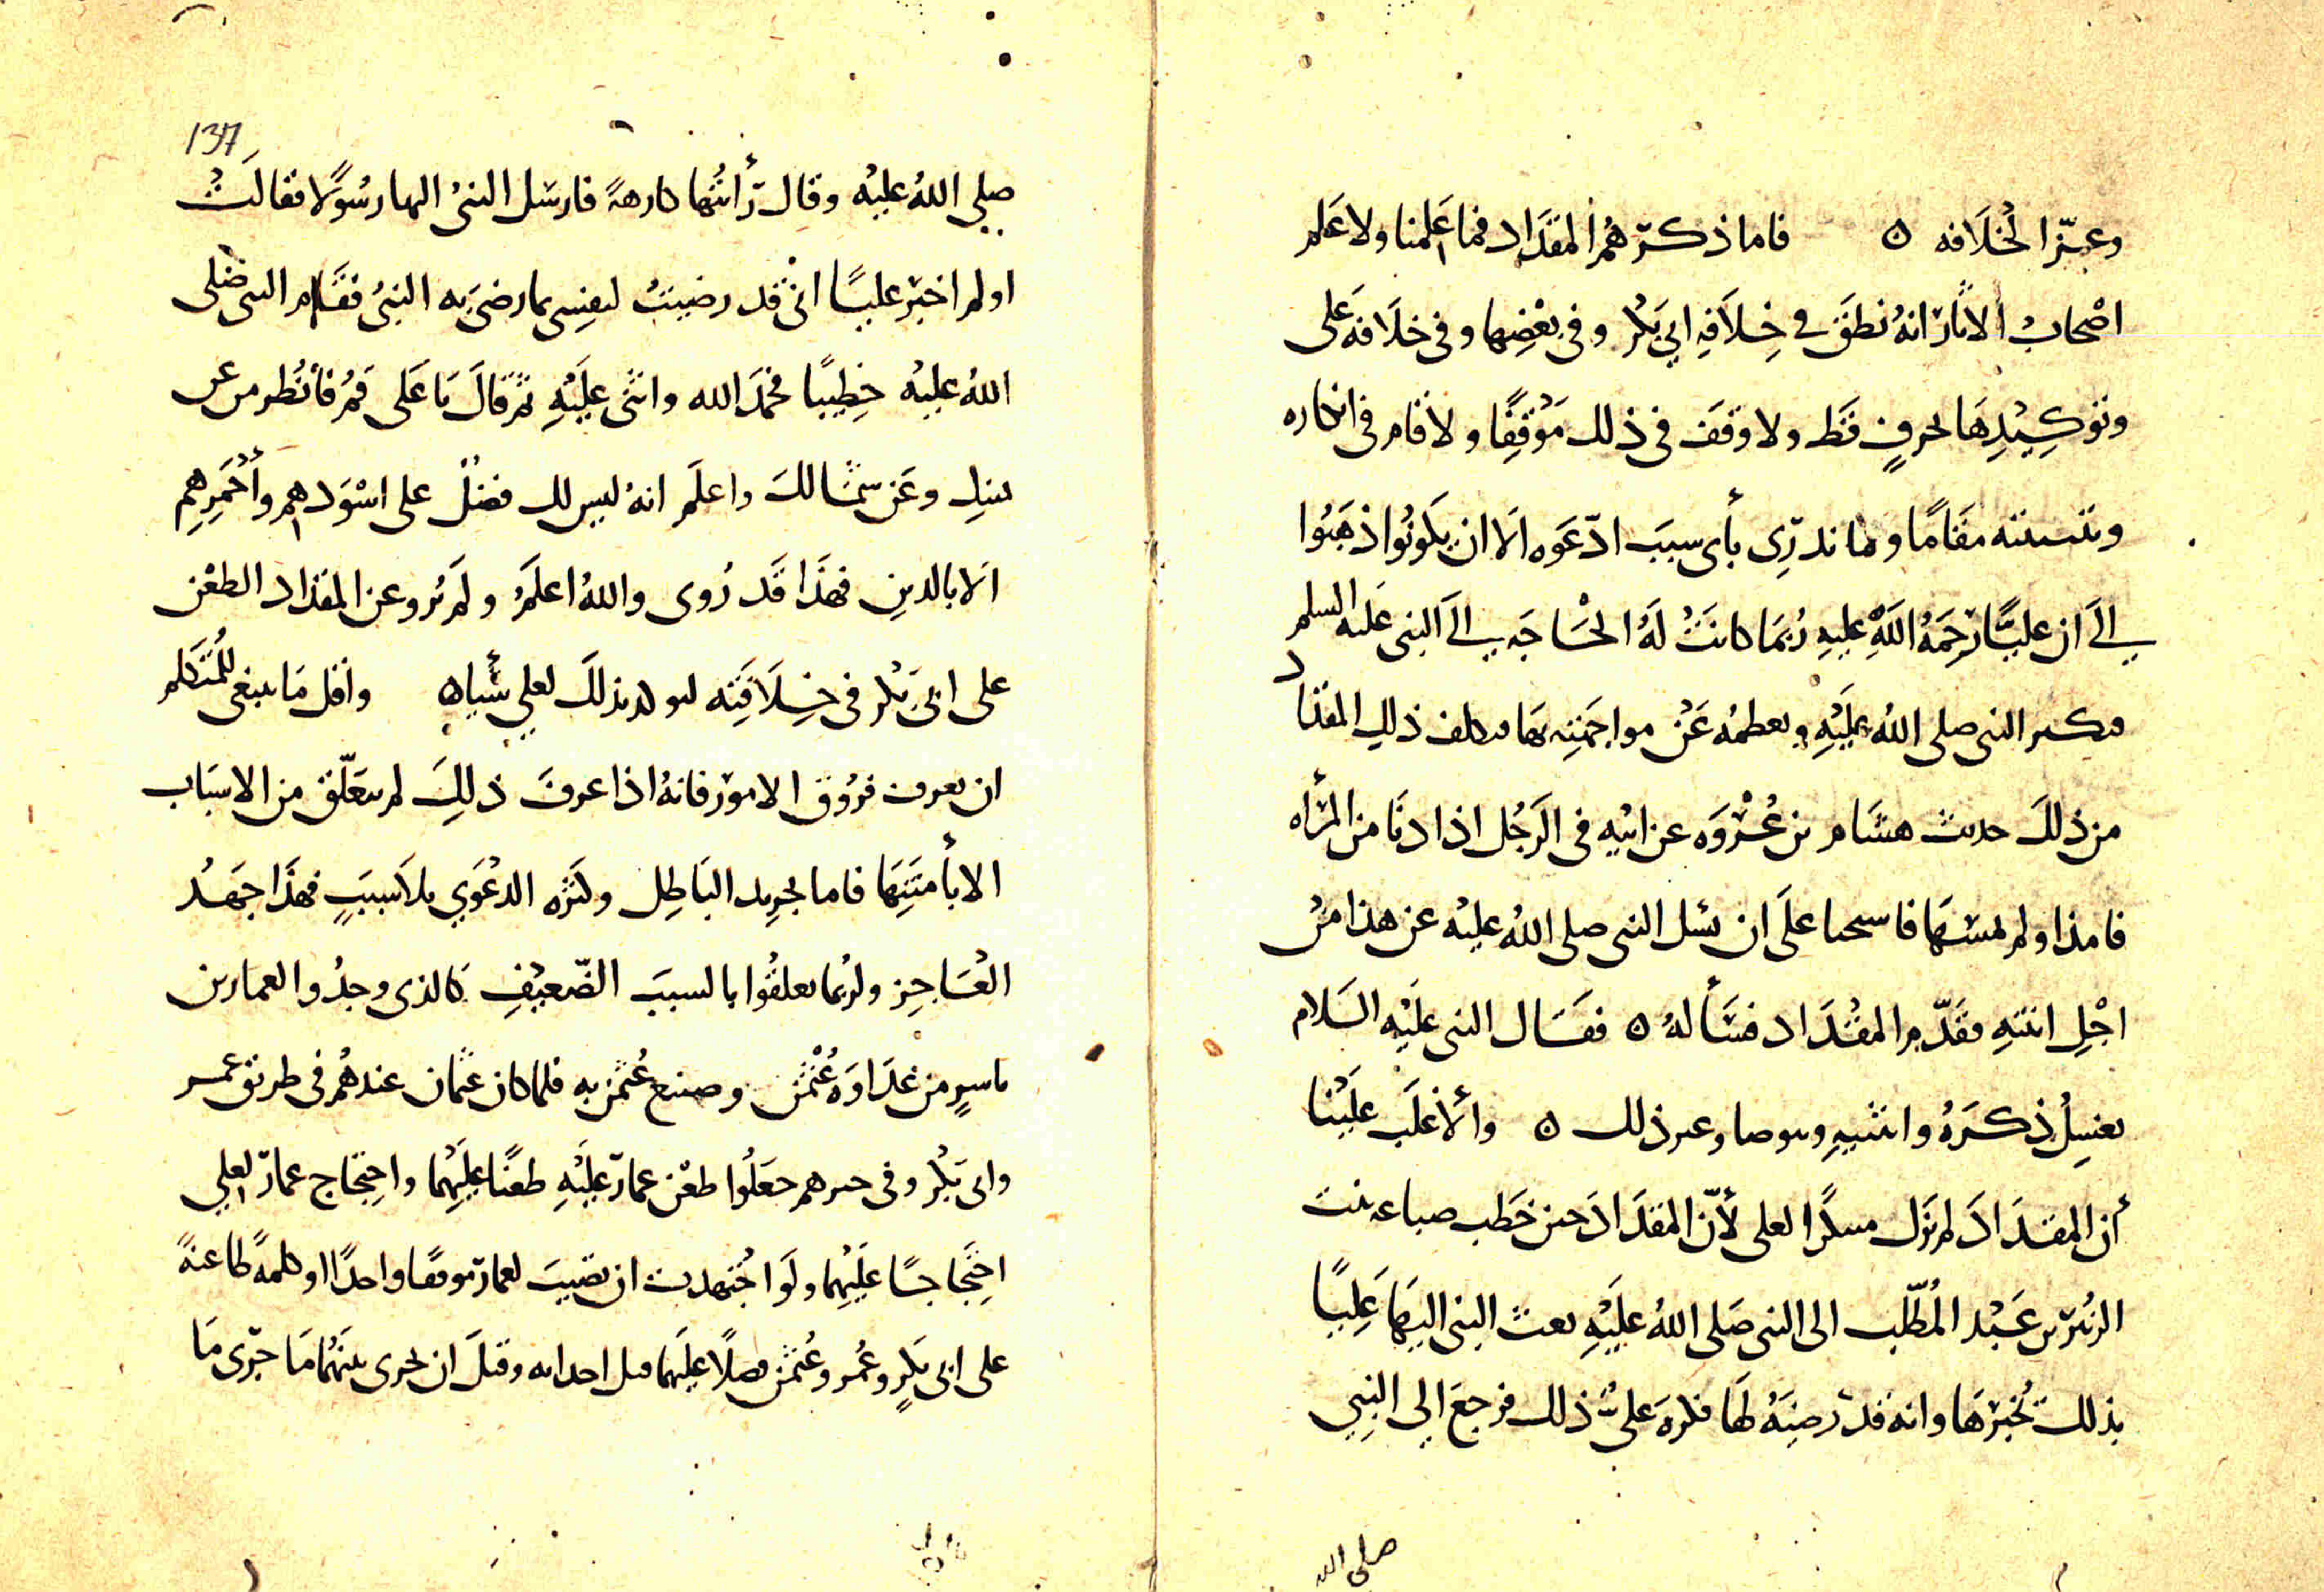 وعبّر الخلافه ه فاما ذكرهم المقداد فما علمنا ولا علم
اصحاب الاثار انه نطق في خلافه ابي بكر وفي بعضها وفي خلافه على
وتوكيدها بحرف قط ولا وقف في ذلك موقفا ولا قام في انكاره
وتثبيته مقاما وما ندري بأي سبب ادّعوه الا ان يكونوا ذهبوا
الى ان عليّا رحمه الله عليه ربما كانت له الحاجه الى النبى عليه السلم
النبى صلى الله عليه ويعظمه عن مواجهته بها ذلك المقداد
من ذلك حديث هشام بن عروه عن ابيه فى الرجل اذا دنا من المرأه
فامذا ولم يمسها فاستحيا على ان يسل النبى صلى الله عليه عن هذا من
اجل ابنته فقدّم المقداد فسأله ه فقال النبى عليه السلام
يغسل ذكره وانثييه ذلك ه والأغلب علينا
أن المقداد لم يزل لعلى لأنّ المقداد حين خطب ضباعه بنت
الزبير بن عبد المطّلب الى النبى صلى الله عليه بعث النبى اليها عليا
بذلك يخبرها وانه قد رضيه لها فكره علىّ ذلك فرجع الى النبي
صلى الله
137
صلى الله عليه وقال رأيتها كارهة فارسل النبى اليها رسولا فقالت
اولم اخبر عليا انى قد رضيت لنفسى بما رضى به النبى فقام النبى صلى
الله عليه خطيبا فحمد الله واثنى عليه ثم قال يا على قم فأنظر من عن
يمينك وعن شمالك واعلم انه ليس لك فضل على اسودهم وأحمرهم
الا بالدين فهذا قد روى والله اعلم ولم يرو عن المقداد الطعن
على ابى بكر فى خلافته بذلك لعلي شيا ه واقل ما ينبغى للمتكلم
ان يعرف فروق الامور فانه اذا عرف ذلك لم يتعلّق من الاسباب
الا بأمتنها فاما تجريد الباطل وكثره الدعوي بلا سبب فهذا جهد
العاجز ولربما تعلقوا بالسبب الضّعيف كالذى وجدوا لعمار بن
ياسر من عداوة عثمن وصنع عثمن به فلما كان عثمان عندهم فى طريق عمر
وابى بكر وفى جعلوا طعن عمار عليه طعنا عليهما واحتجاج عمار لعلي
احتجاجا عليهما ولو اجتهدت ان تصيب لعمار موقفا واحدا او كلمة طاعنة
على ابى بكر وعمر وعثمن عليهما قبل وقبل ان يجرى بينهما ما جرى ما